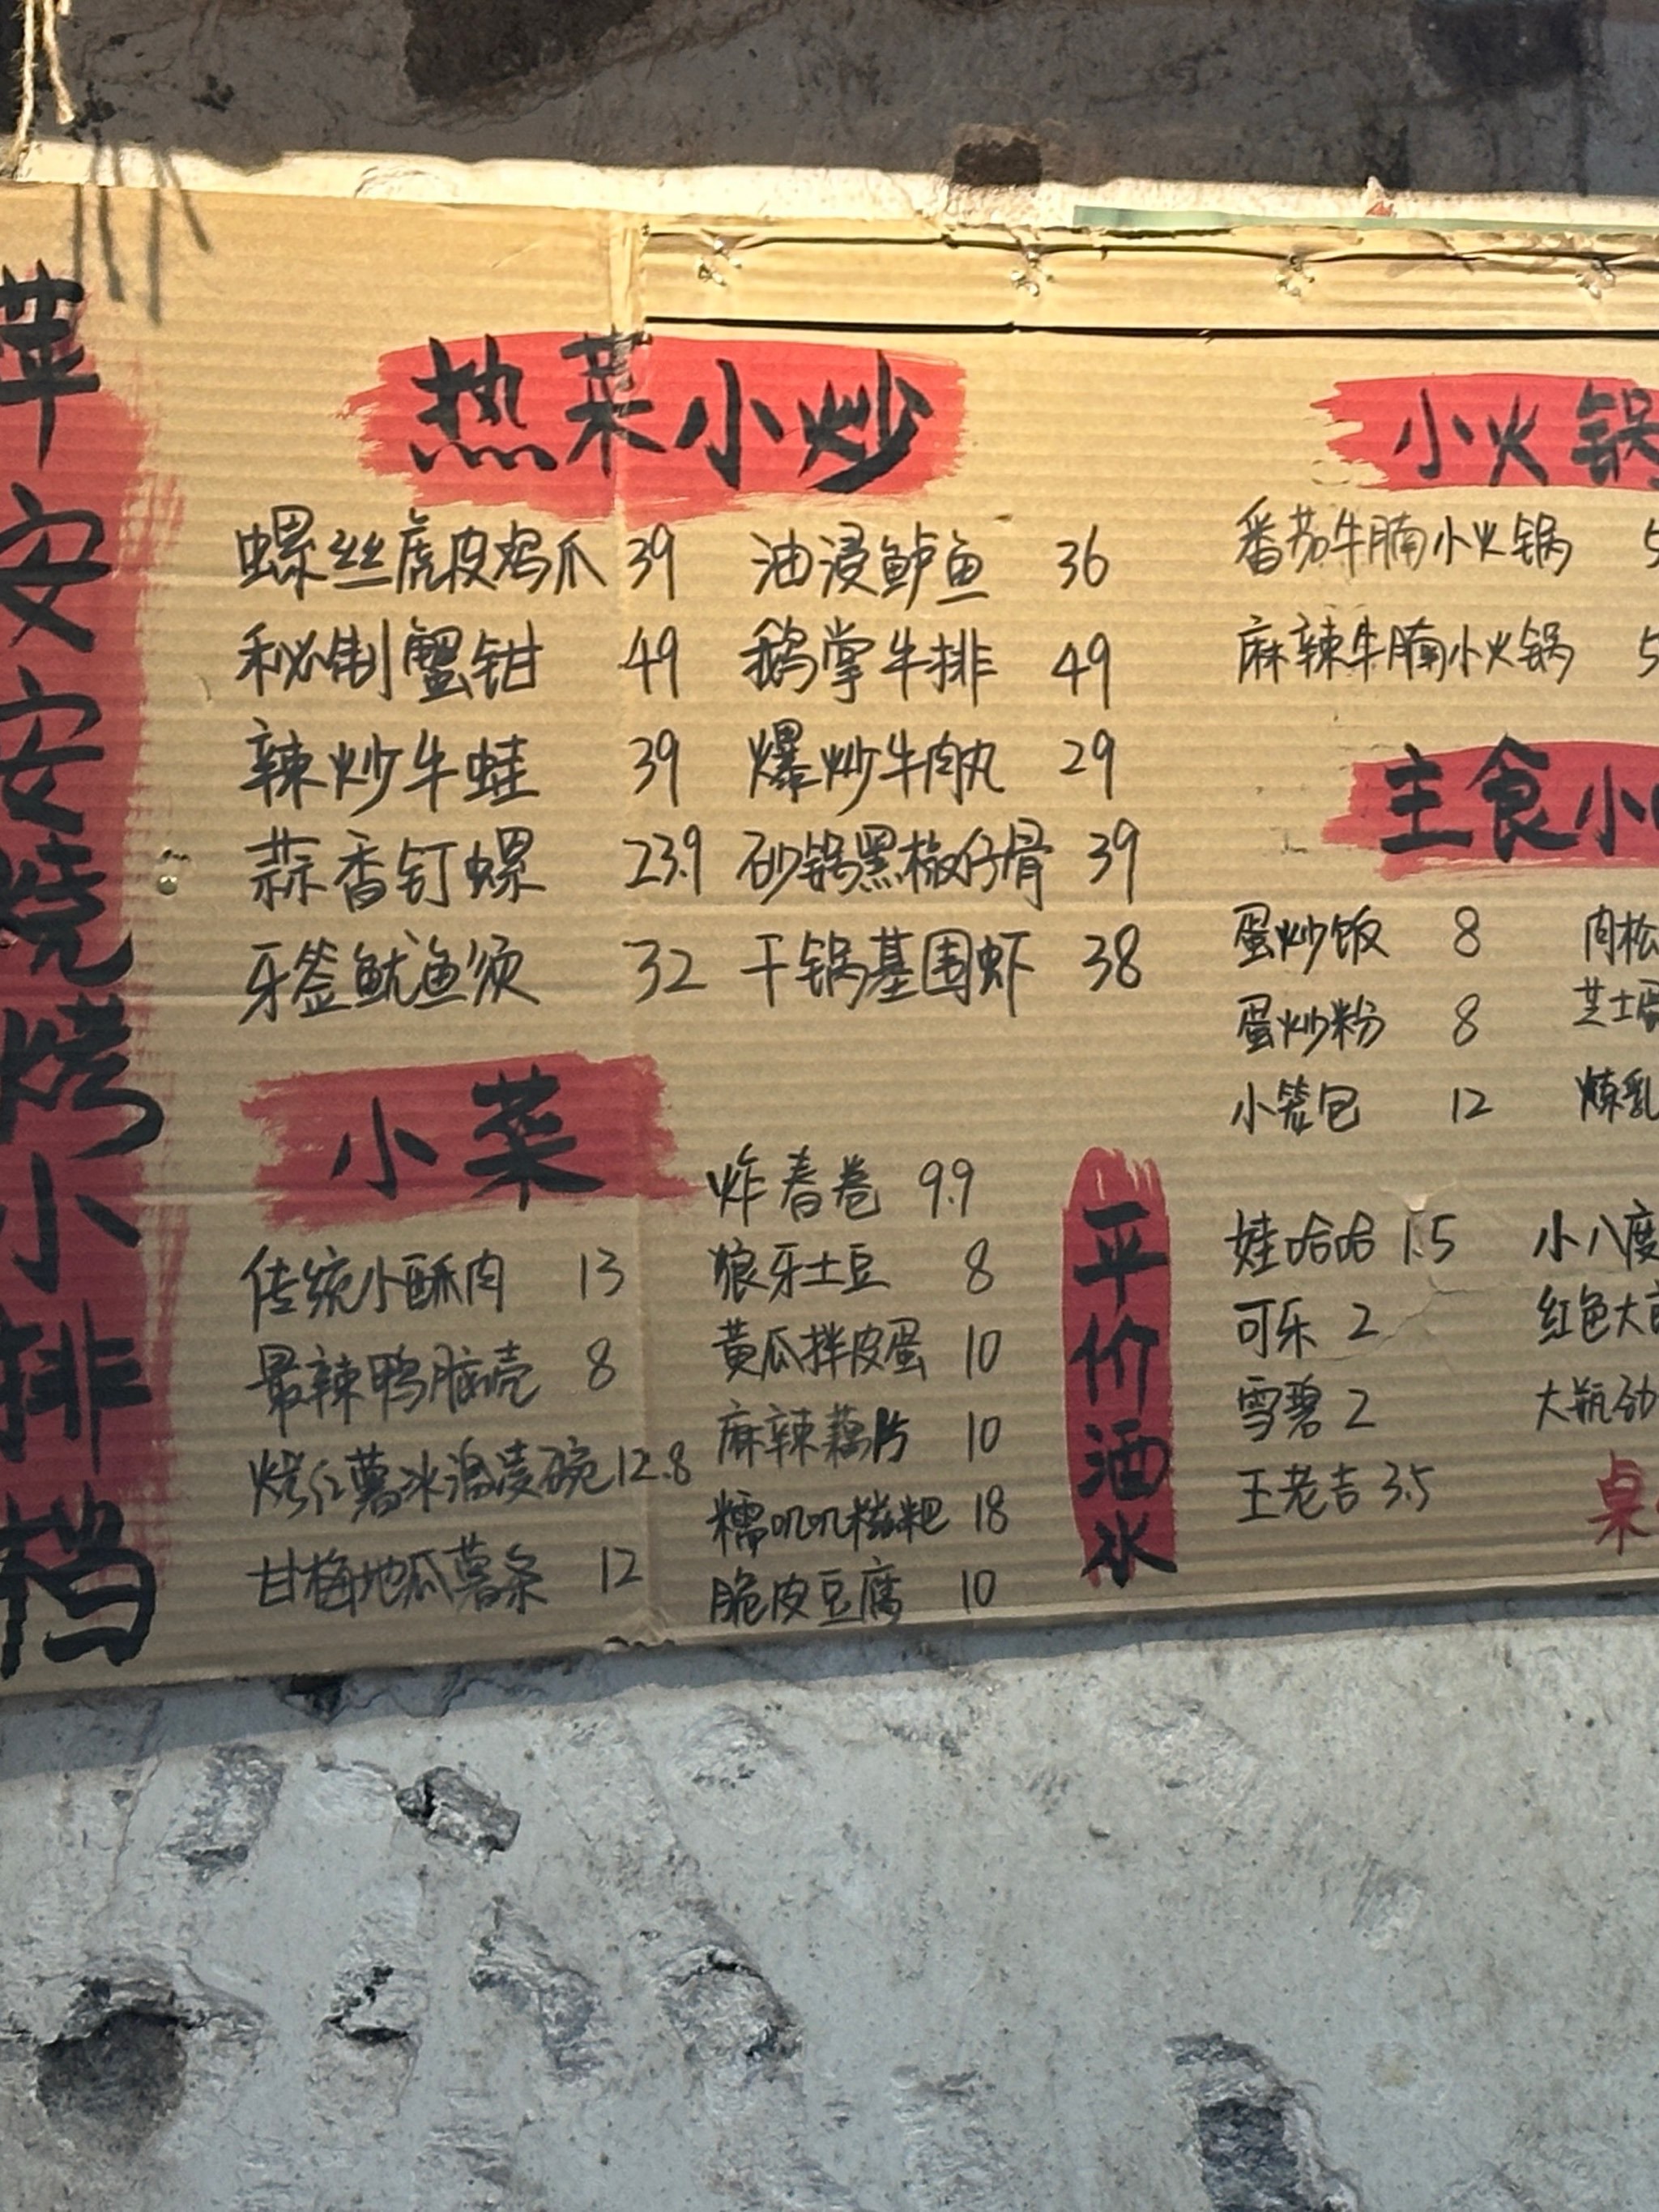 苹安安烧烤小排档
热菜小炒
螺丝虎皮鸡爪 39
秘制蟹钳 49
辣炒牛蛙 39
蒜香钉螺 23.9
牙签鱿鱼须 32
油浸鲈鱼 36
鹅掌牛排 49
爆炒牛肉丸 29
砂锅黑椒仔骨 39
干锅基围虾 38
小菜
传统小酥肉 13
最辣鸭脑壳 8
烤红薯冰淇凌碗 12.8
甘梅地瓜薯条 12
炸春卷 9.9
狼牙土豆 8
黄瓜拌皮蛋 10
麻辣藕片 10
糯叽叽糍粑 18
脆皮豆腐 10
小火锅
番茄牛腩小火锅 5
麻辣牛腩小火锅 5
主食小
蛋炒饭 8
蛋炒粉 8
小笼包 12
肉松
芝士蛋
炼乳
平价酒水
娃哈哈 1.5
可乐 2
雪碧 2
王老吉 3.5
小八度
红色大
大瓶劲
桌